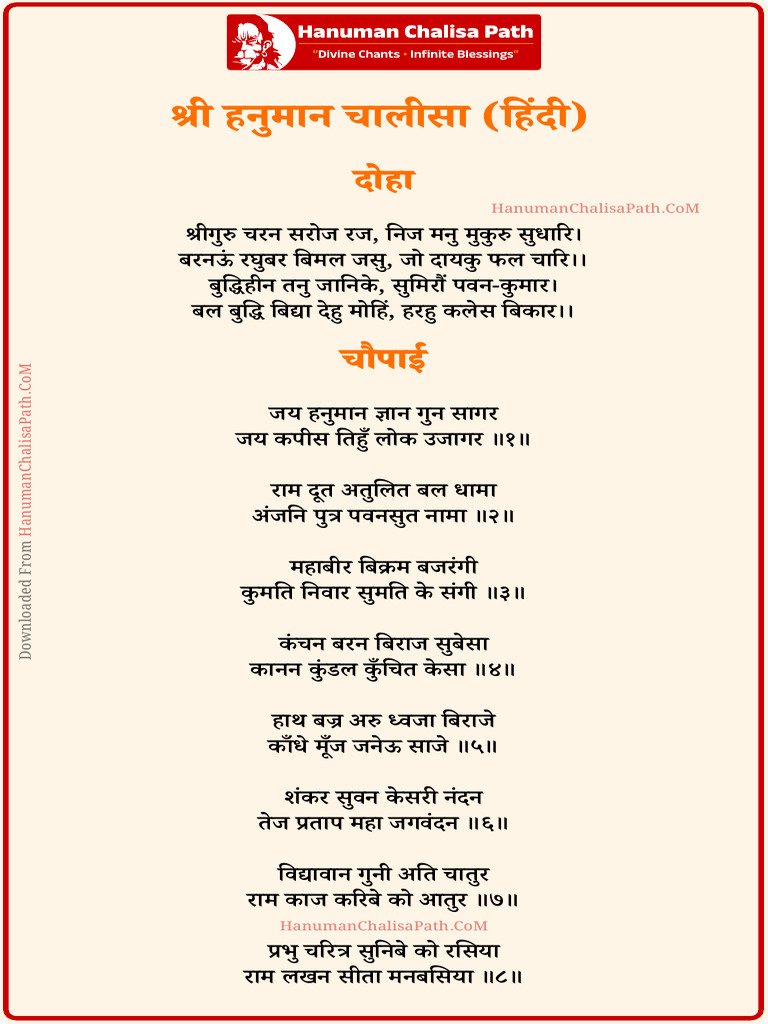 Hanuman Chalisa Path
"Divine Chants - Infinite Blessings"
श्री हनुमान चालीसा (हिंदी)
दोहा
HanumanChalisaPath.CoM
श्रीगुरु चरन सरोज रज, निज मनु मुकुरु सुधारि।
बरनऊं रघुबर बिमल जसु, जो दायकु फल चारि।।
बुद्धिहीन तनु जानिके, सुमिरौं पवन-कुमार।
बल बुद्धि बिद्या देहु मोहिं, हरहु कलेस बिकार।।
चौपाई
जय हनुमान ज्ञान गुन सागर
जय कपीस तिहुँ लोक उजागर ॥१॥
राम दूत अतुलित बल धामा
अंजनि पुत्र पवनसुत नामा ॥२॥
महाबीर बिक्रम बजरंगी
कुमति निवार सुमति के संगी ॥३॥
कंचन बरन बिराज सुबेसा
कानन कुंडल कुँचित केसा ॥४॥
हाथ बज्र अरु ध्वजा बिराजे
काँधे मूँज जनेऊ साजे ॥५॥
शंकर सुवन केसरी नंदन
तेज प्रताप महा जगवंदन ॥६॥
विद्यावान गुनी अति चातुर
राम काज करिबे को आतुर ॥७॥
HanumanChalisaPath.CoM
प्रभु चरित्र सुनिबे को रसिया
राम लखन सीता मनबसिया ॥८॥
Downloaded From HanumanChalisaPath.CoM